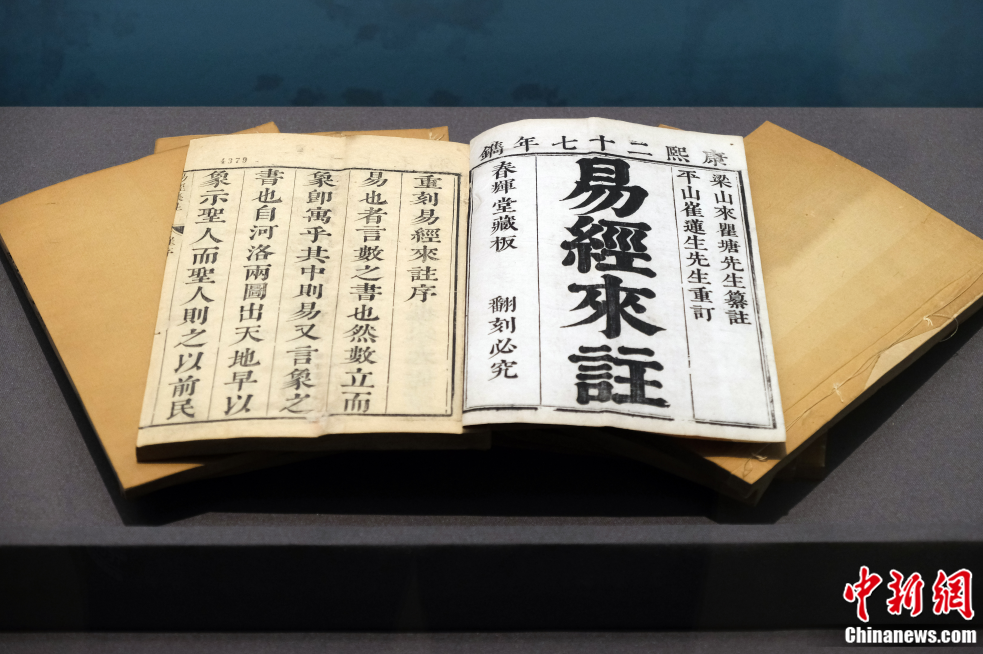 康熙二十七年鐫
梁山來瞿塘先生纂註
平山崔蓮生先生重訂
易經來註
春輝堂藏板 翻刻必究
4379
重刻易經來註序
易也者言數之書也然數立而
象卽寓乎其中則易又言象之
書也自河洛兩圖出天地早以
象示聖人而聖人則之以前民
中新網
Chinanews.com